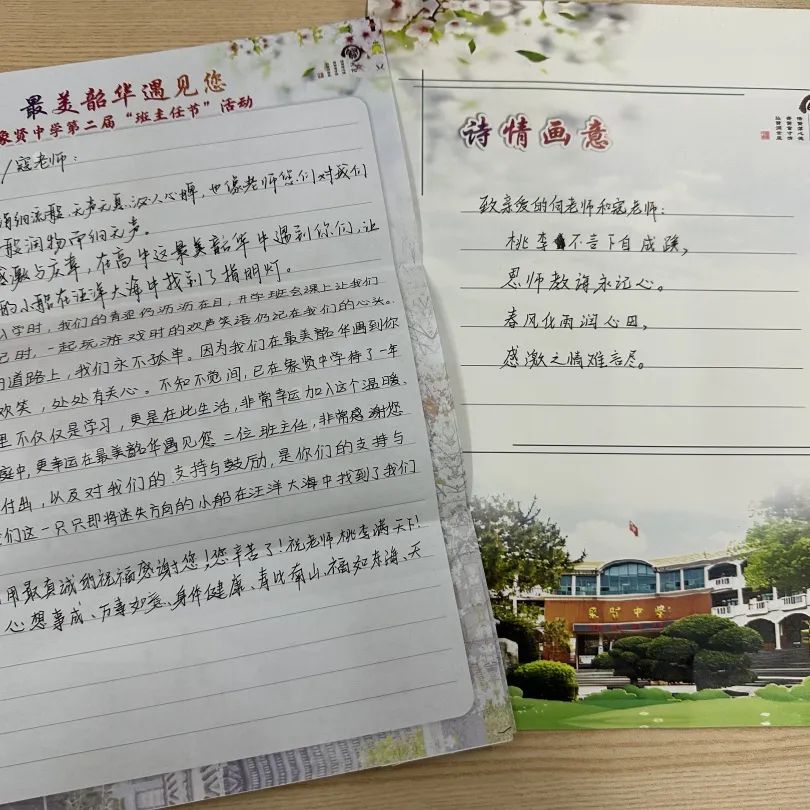 最美韶华遇见您
象贤中学第二届“班主任节”活动
/寇老师：
细流般、无声无息、沁人心脾，也像老师您们对我们
般润物而细无声。
感激与庆幸，在高中这最美韶华中遇到你们，让
的小船在汪洋大海中找到了指明灯。
学时，我们的青涩仍历历在目，开学班会课上让我们
己时，一起玩游戏时的欢声笑语仍记在我们的心头。
道路上，我们永不孤单。因为我们在最美韶华遇到你
欢笑，处处有关心。不知不觉间，已在象贤中学待了一年
里不仅仅是学习，更是在此生活，非常幸运加入这个温暖、
庭中，更幸运在最美韶华遇见您二位班主任，非常感谢您
付出，以及对我们的支持与鼓励，是你们的支持与
们这一只只即将迷失方向的小船在汪洋大海中找到了我们
用最真诚的祝福感谢您！您辛苦了！祝老师桃李满天下！
心想事成、万事如意、身体健康、寿比南山、福如东海、天
诗情画意
致亲爱的何老师和寇老师：
桃李不言下自成蹊，
恩师教诲永记心。
春风化雨润心田，
感激之情难言尽。
象贤中学